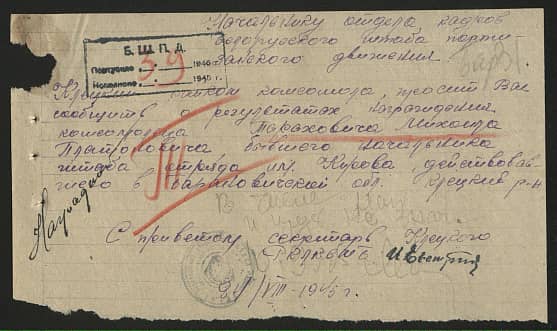 Начальнику отдела кадров
белорусского штаба парти
занского движения
Б. Ш. П. Д.
Поступило 3-9 1945 г.
Исполнено 1945 г.
Клецкий райком комсомола, просит Вас
сообщить о результатах награждения
комсомольца Параховича Михаила
Платоновича бывшего начальника
штаба отряда им. Кирова, действовав
шего в Барановичской обл. Клецкий р-н
Наградной
С приветом секретарь Клецкого
РК ЛКСМБ
VIII-1945 г.